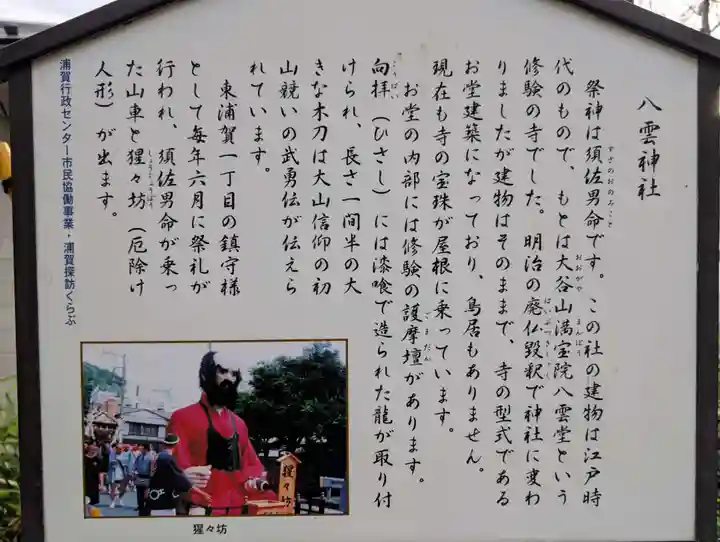 八雲神社
祭神は須佐男命です。この社の建物は江戸時
代のもので、もとは大谷山満宝院八雲堂という
修験の寺でした。明治の廃仏毀釈で神社に変わ
りましたが建物はそのままで、寺の型式である
お堂建築になっており、鳥居もありません。
現在も寺の宝珠が屋根に乗っています。
お堂の内部には修験の護摩壇があります。
向拝(ひさし)には漆喰で造られた龍が取り付
けられ、長さ一間半の大
きな木刀は大山信仰の初
山競いの武勇伝が伝えら
れています。
東浦賀一丁目の鎮守様
として毎年六月に祭礼が
行われ、須佐男命が乗っ
た山車と猩々坊(厄除け
人形)が出ます。
浦賀行政センター市民協働事業・浦賀探訪くらぶ
猩々坊
猩々坊